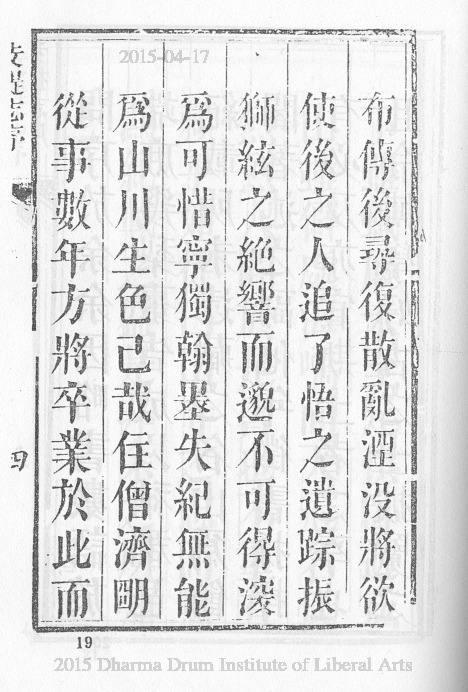 2015-04-17
布傳後尋復散亂湮没將欲
使後之人追了悟之遺踪振
獅絃之絶響而邈不可得深
爲可惜寧獨翰墨失紀無能
爲山川生色已哉住僧濟眀
從事數年方將卒業於此而
四
19
2015 Dharma Drum Institute of Liberal Arts